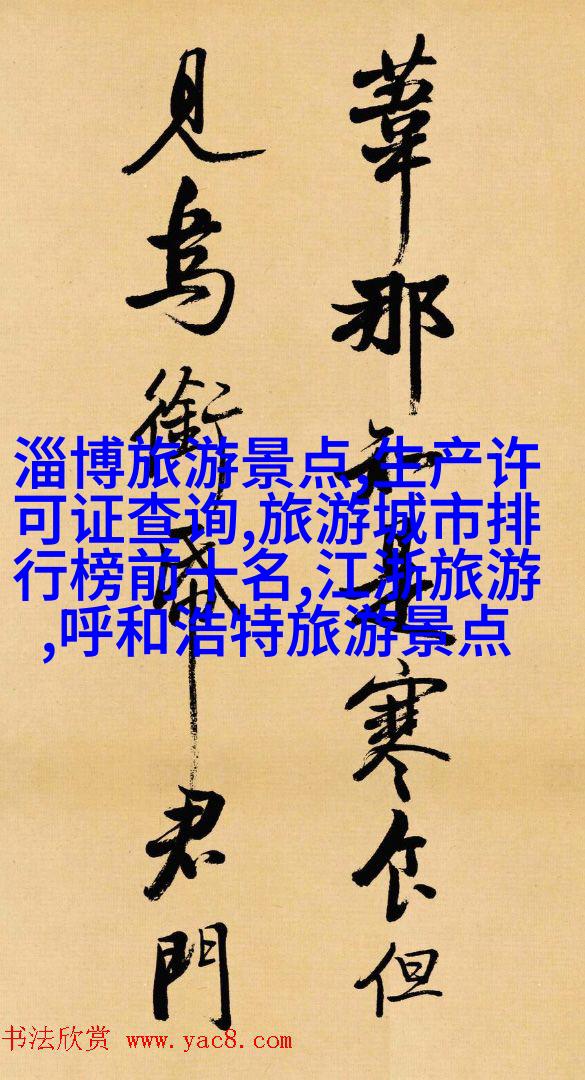 葦那知是寒食但
見烏銜帋君門
淄博旅游景点,生产许
可证查询,旅游城市排
行榜前十名,江浙旅游
,呼和浩特旅游景点
书法欣赏 www.yac8.com